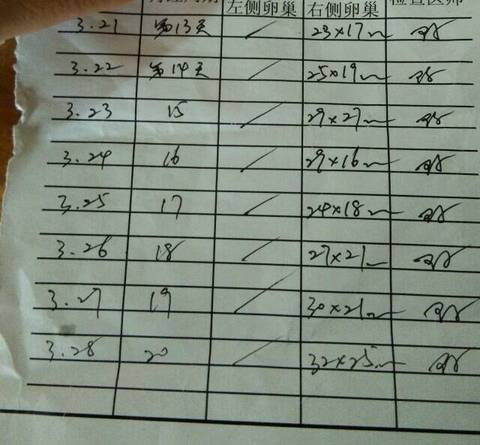 左侧卵巢 右侧卵巢 检查医师
3.21 第13天 / 23×17mm
3.22 第14天 / 25×19mm
3.23 15 / 29×27mm
3.24 16 / 29×16mm
3.25 17 / 24×18mm
3.26 18 / 27×21mm
3.27 19 / 30×21mm
3.28 20 / 32×25mm